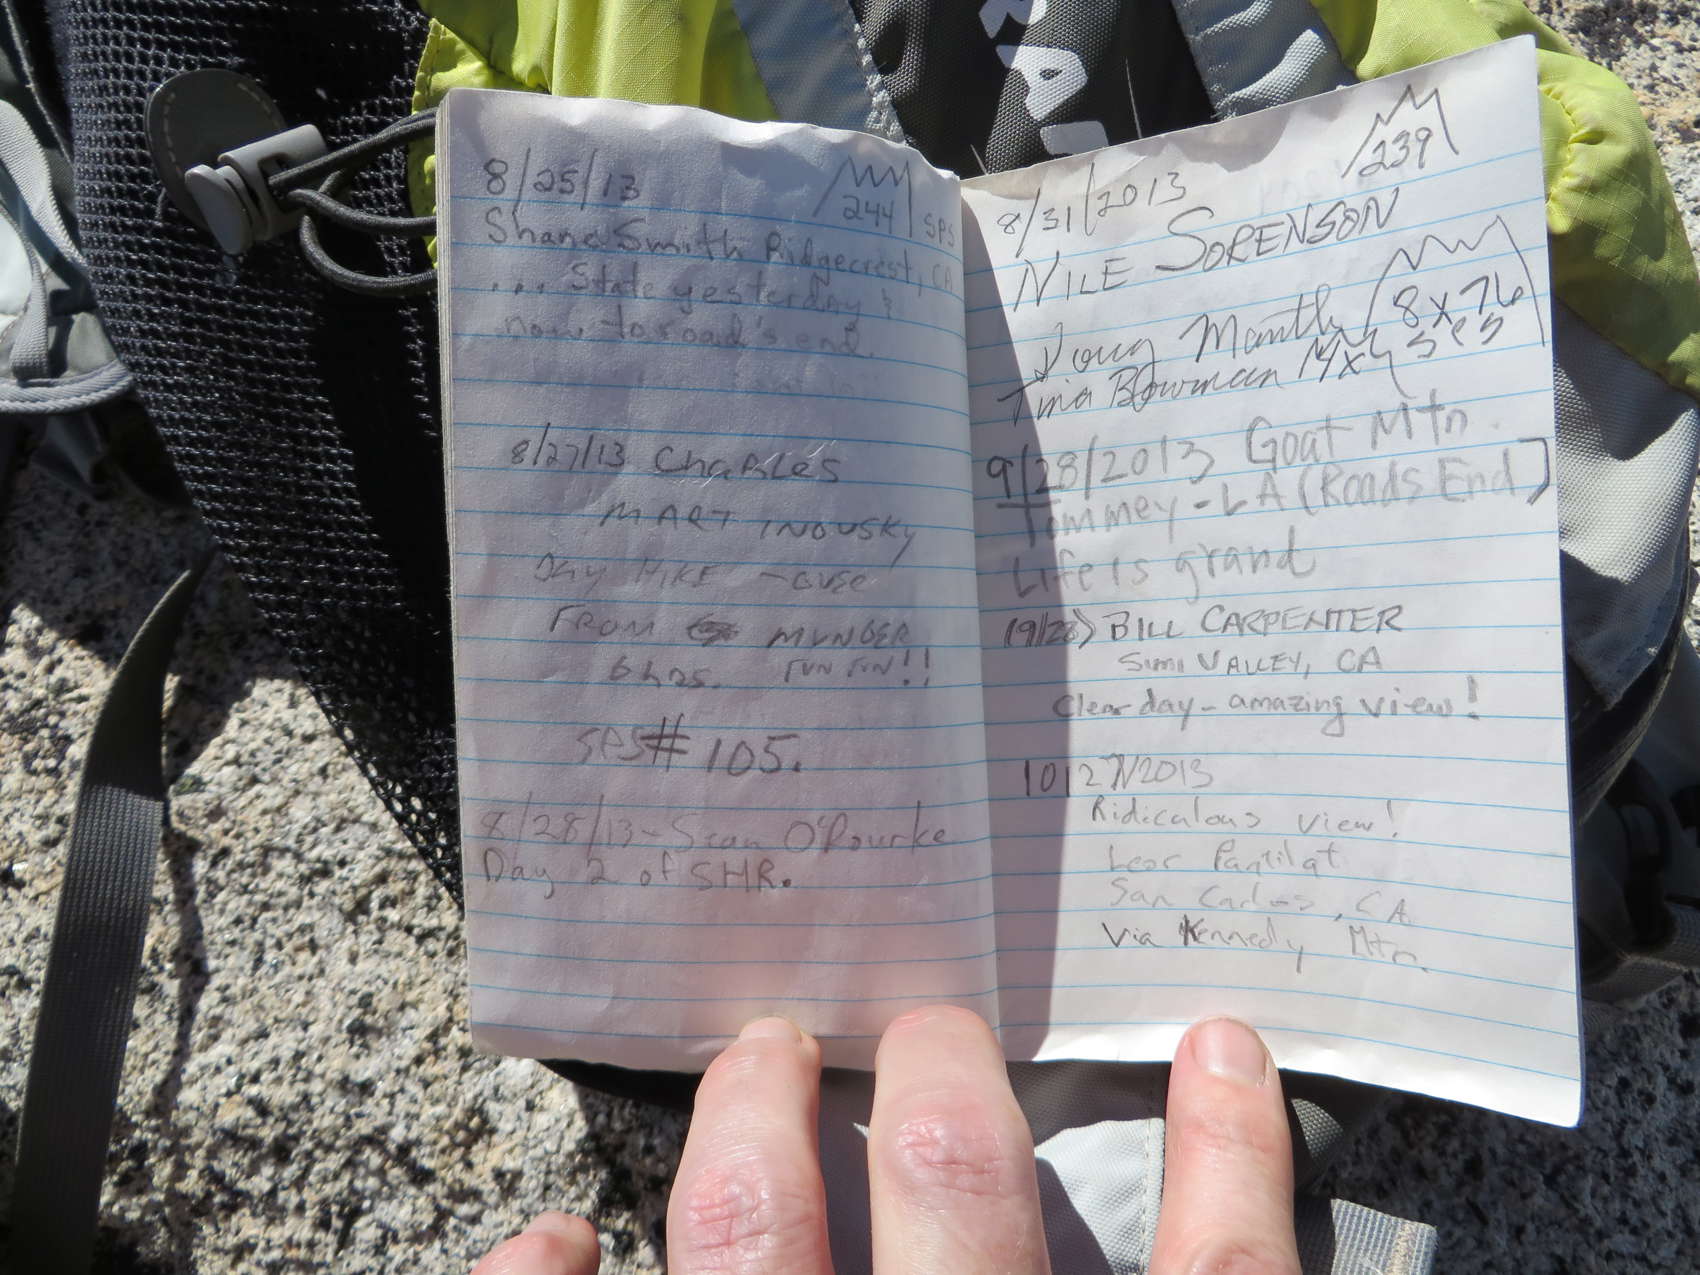 8/25/13 244 SPS
Shane Smith Ridgecrest, CA
... State yesterday &
now to road's end.
8/27/13 CHARLES
MARTINOVSKY
DAY HIKE
FROM MUNGER
6 hrs. FUN FUN!!
SPS# 105.
8/28/13- Sean O'Rourke
Day 2 of SHR.
239
8/31/2013
NILE SORENSON
Doug Mantle 8x76
Tina Bowman 14x SPS
9/28/2013 Goat Mtn.
Tommey - LA (Roads End)
Life is grand
(9/28) BILL CARPENTER
SIMI VALLEY, CA
Clear day - amazing view!
10/27/2013
Ridiculous view!
Leor Pantilat
San Carlos, CA
Via Kennedy Mtn.